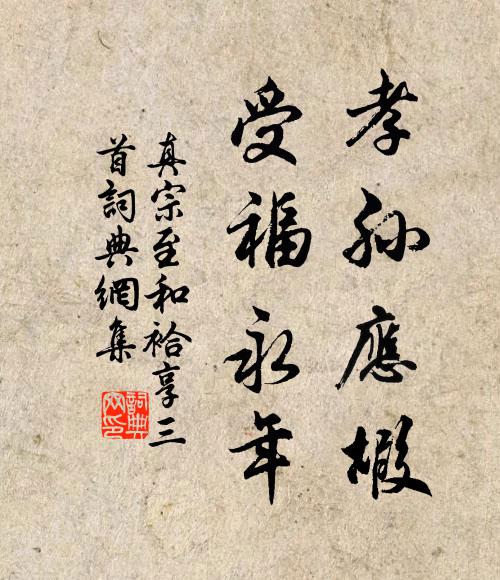 孝孫應嘏
受福永年
真宗至和祫享三
首詞典網集
詞典
网印